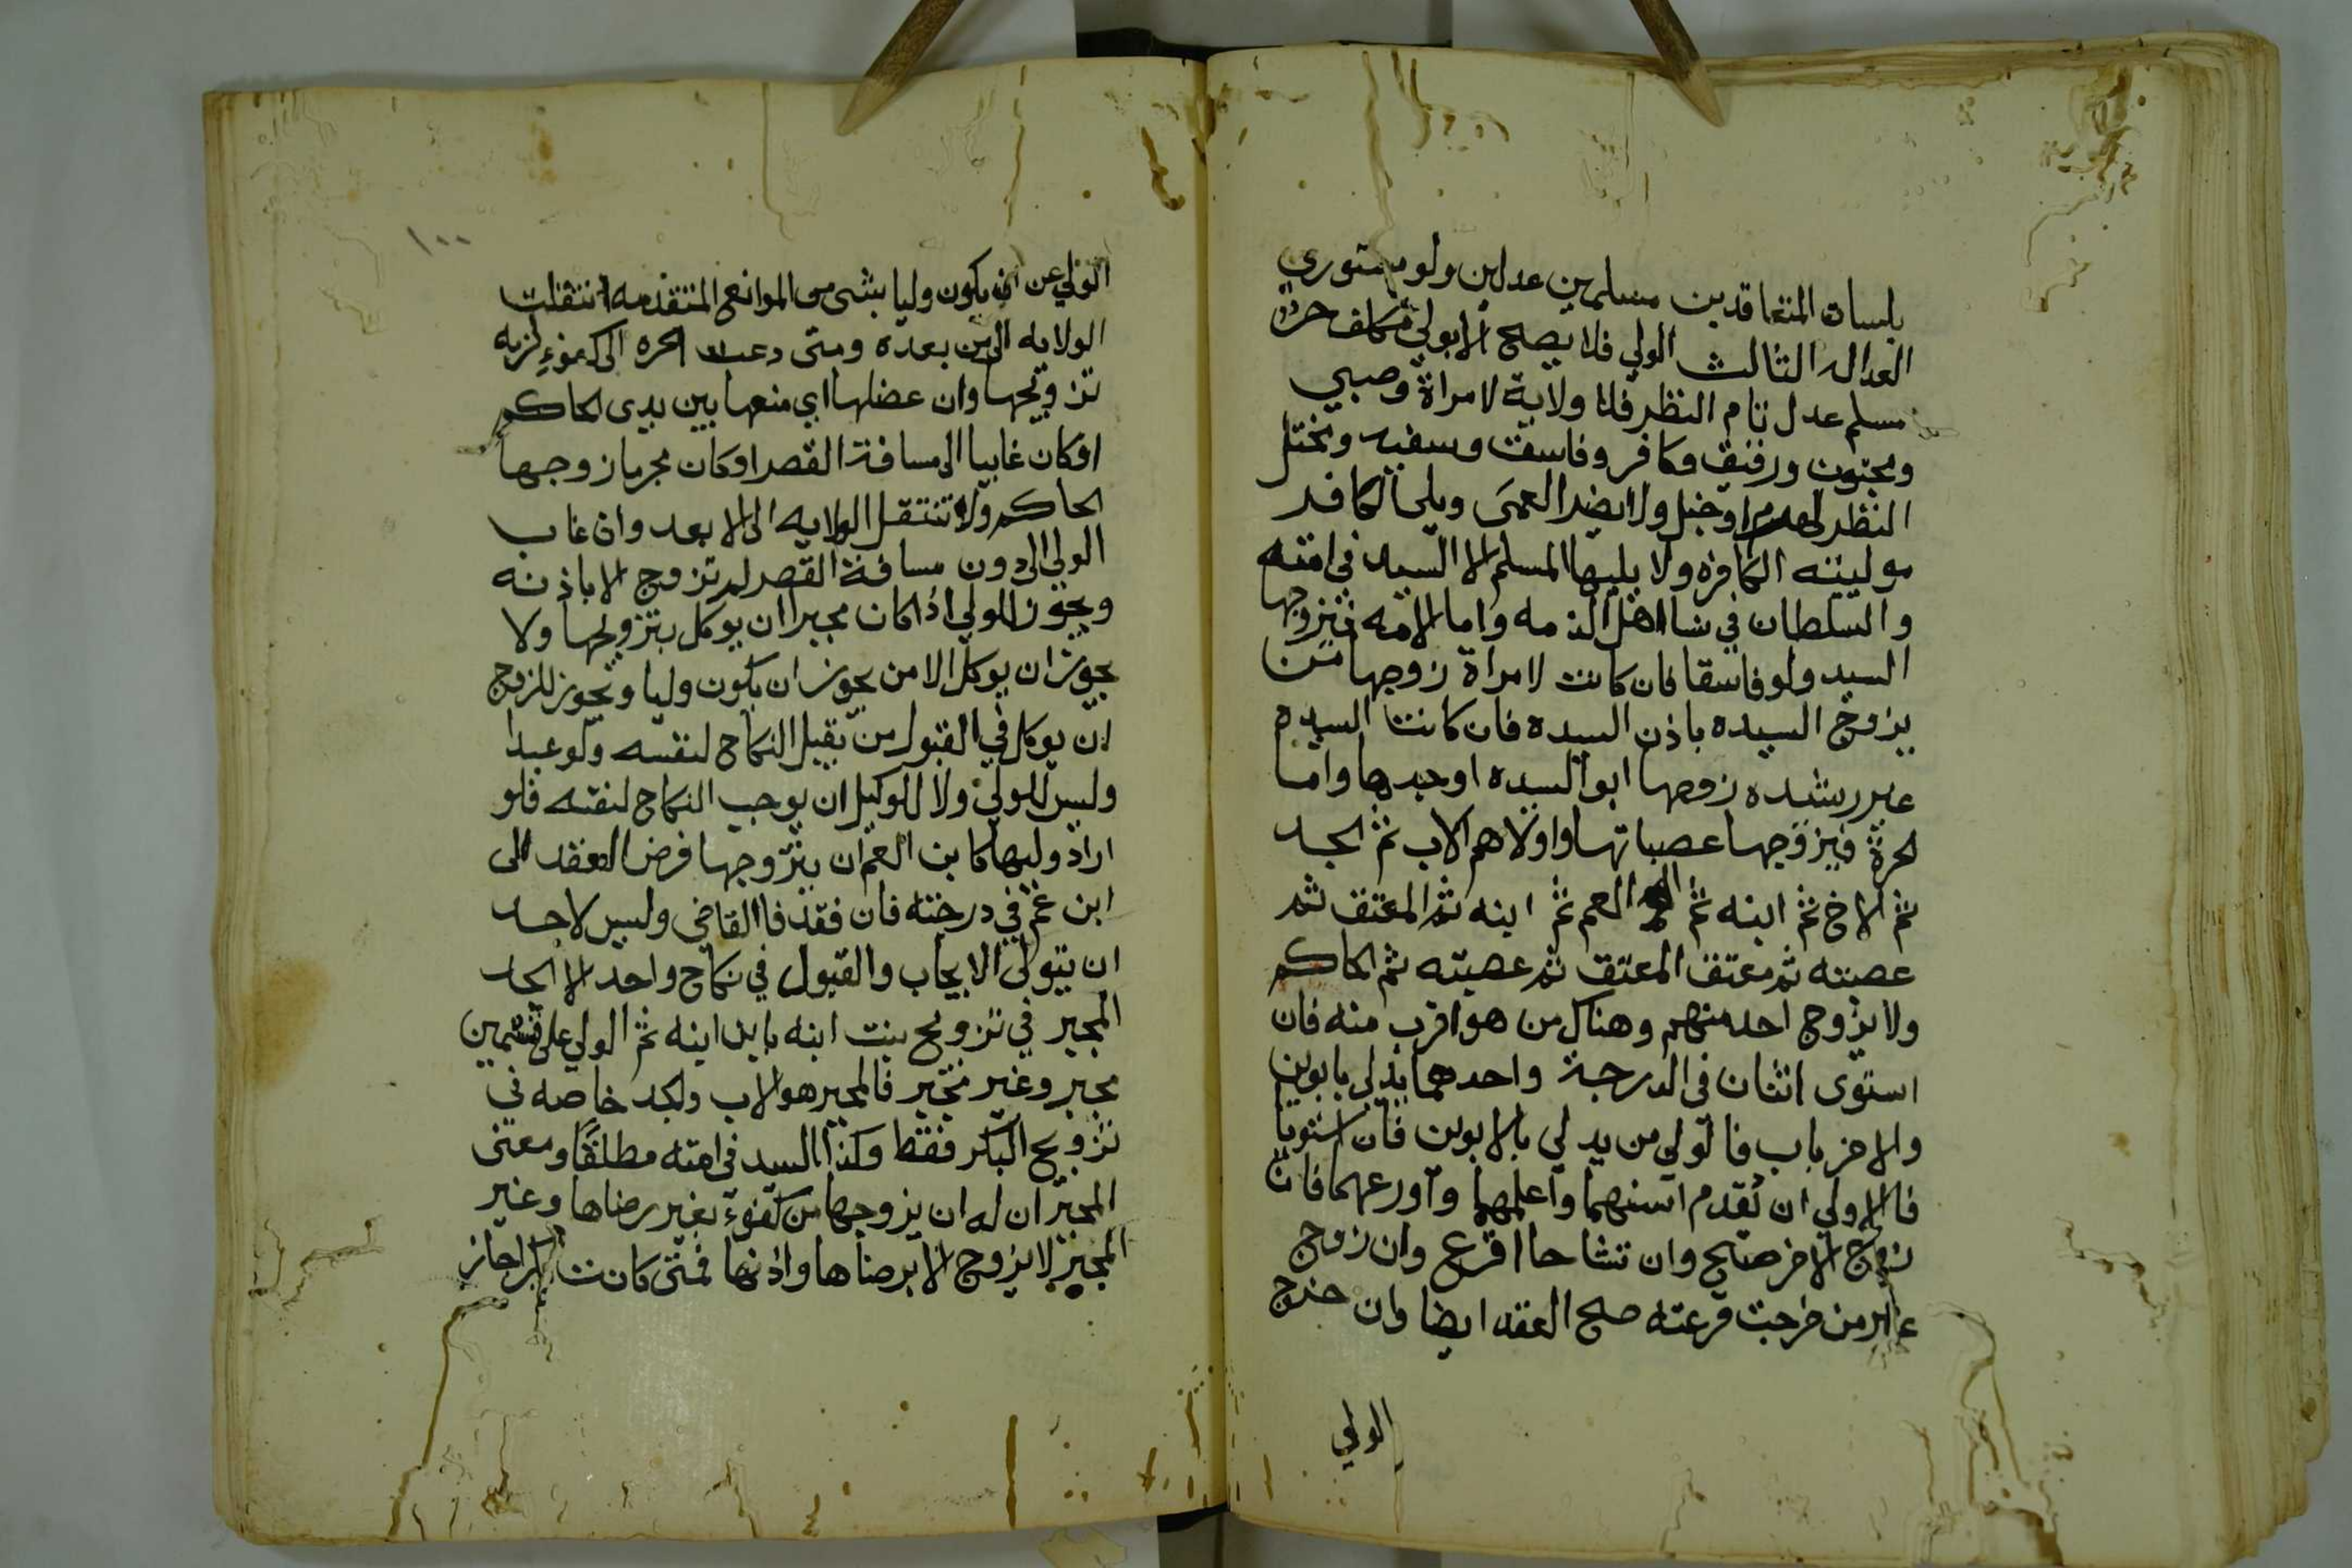 بلسان المتعاقدين مسلمين عدلين ولو مستوري
العداله الثالث الولي فلا يصح الا بولي مكلف حر
مسلم عدل تام النظر فلا ولاية لامراة وصبي
ومجنون ورقيق وكافر وفاسق وسفيه ومختل
النظر لهرم او خبل ولا يضر العمى ويلي الكافر
موليته الكافره ولا يليها المسلم الا السيد في امته
والسلطان في نسا اهل الذمه واما الامه فيزوجها
السيد ولو فاسقا فان كانت لامراة زوجها من
يزوج السيده باذن السيده فان كانت السيده
غير رشيده زوجها ابو السيده او جدها واما
الحرة فيزوجها عصباتها واولاهم الاب ثم الجد
ثم الاخ ثم ابنه ثم العم ثم ابنه ثم المعتق ثم
عصبته ثم معتق المعتق ثم عصبته ثم الحاكم
ولا يزوج احد منهم وهناك من هو اقرب منه فان
استوى اثنان في الدرجة واحدهما يدلي بابوين
والاخر باب فالولي من يدلي بالابوين فان استويا
فالاولي ان يقدم اسنهما واعلمهما واورعهما فان
زوج الاخر صح وان تشاحا اقرع وان زوج
غير من خرجت قرعته صح العقد ايضا وان خرج
الولي
١٠٠
الولي عن ان يكون وليا بشي من الموانع المتقدمه انتقلت
الولايه الى من بعده ومتى دعت الحره الى كفوء لزمه
تزويجها وان عضلها اي منعها بين يدى الحاكم
او كان غايبا الى مسافة القصر او كان محرما زوجها
الحاكم ولا تنتقل الولايه الى الابعد وان غاب
الولي الى دون مسافة القصر لم تزوج الا باذنه
ويجوز للولي اذا كان مجبرا ان يوكل بتزويجها ولا
يجوز ان يوكل الا من يجوز ان يكون وليا ويجوز للزوج
ان يوكل في القبول من يقبل النكاح لنفسه ولو عبدا
وليس للولي ولا للوكيل ان يوجب النكاح لنفسه فلو
اراد وليها كابن العم ان يتزوجها فوض العقد الى
ابن عم في درجته فان فقد فالقاضي وليس لاحد
ان يتولى الايجاب والقبول في نكاح واحد الا الجد
المجبر في تزويج بنت ابنه بابن ابنه ثم الولي على قسمين
مجبر وغير مجبر فالمجبر هو الاب والجد خاصه في
تزويج البكر فقط وكذا السيد في امته مطلقا ومعنى
المجبر ان له ان يزوجها من كفوء بغير رضاها وغير
المجبر لا يزوج الا برضاها واذنها فمتى كانت بكرا جاز